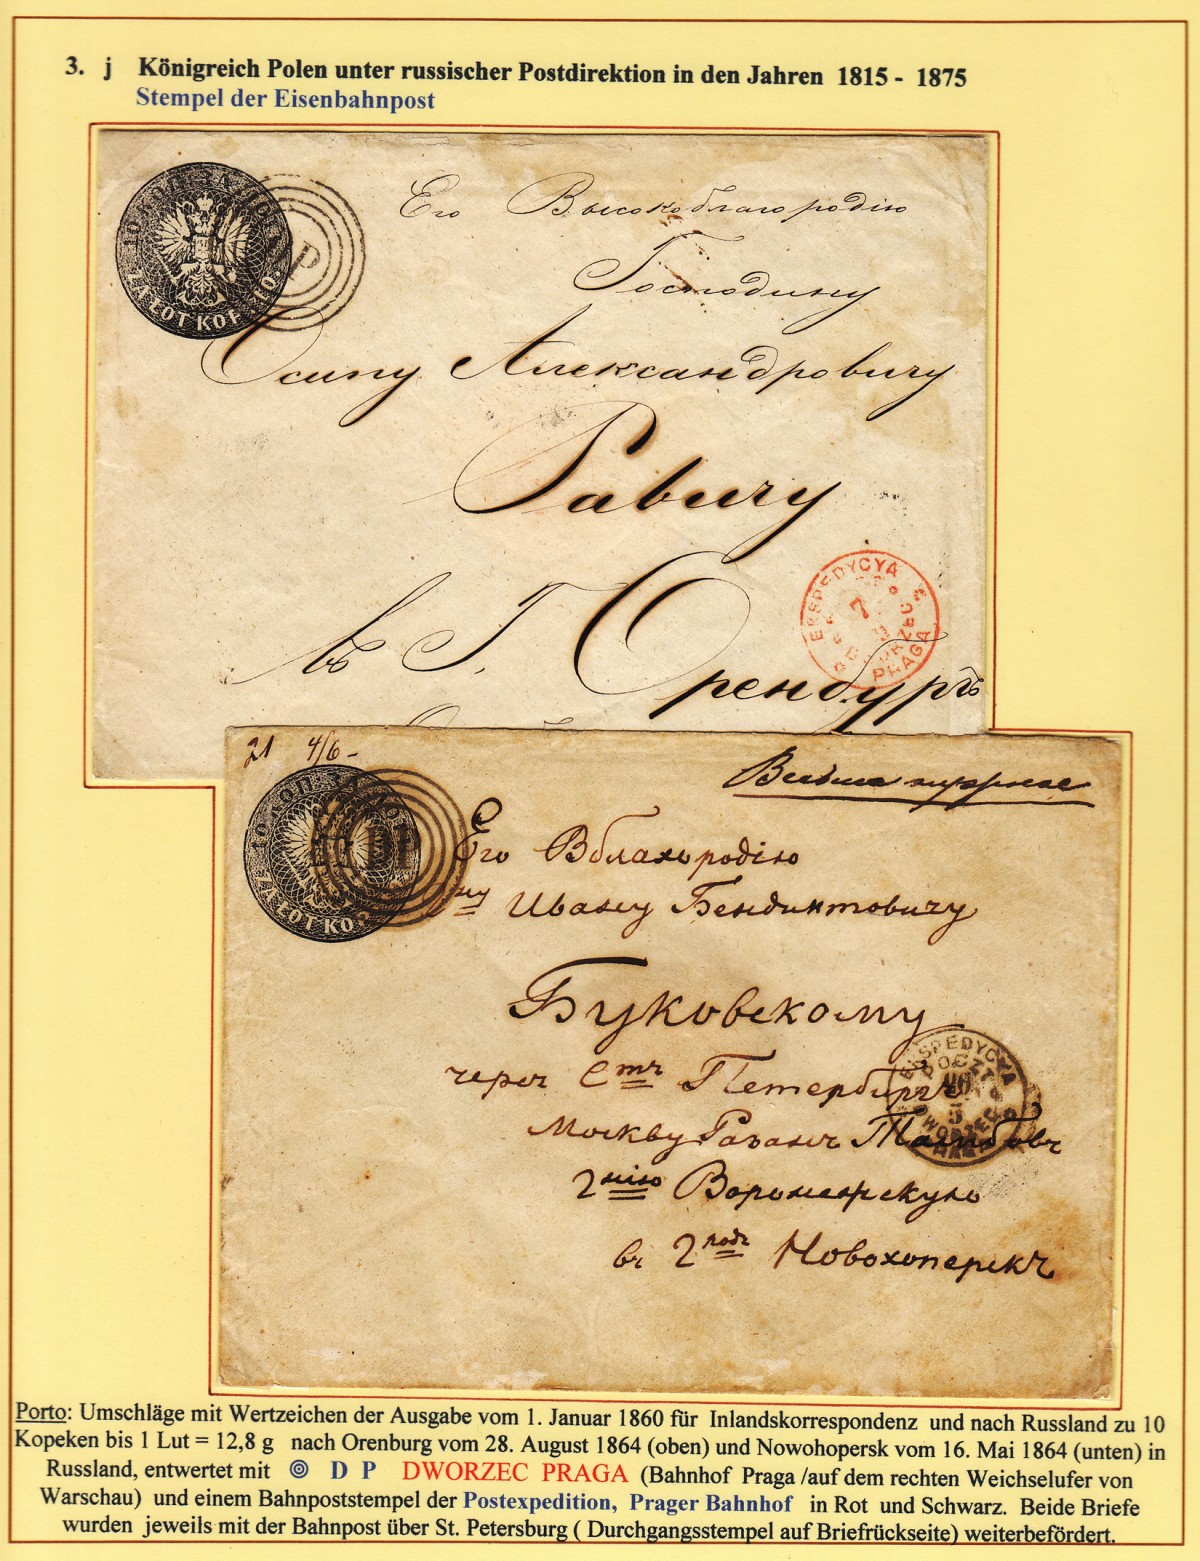 3. j Königreich Polen unter russischer Postdirektion in den Jahren 1815 - 1875
Stempel der Eisenbahnpost
10 КОП. ЗА ЛОТ
ZA ŁOT KOP. 10.
P
Его Высокоблагородію
Господину
Осипу Александровичу
Равичу
въ Г. Оренбургъ
EKSPEDYCYA
7
DWORZEC
PRAGA
21 4/6-
10 КОП. ЗА
ZA ŁOT KO
DP
Его Вблагородію
Ивану Бендиктовичу
Буковскому
чрезъ Стъ Петербургъ
Москву Разань Тамбовъ
Воронежскую
въ Новохоперскъ
EKSPEDYCYA
POCZT
16
5
DWORZEC
PRAGA
Porto: Umschläge mit Wertzeichen der Ausgabe vom 1. Januar 1860 für Inlandskorrespondenz und nach Russland zu 10
Kopeken bis 1 Lut = 12,8 g nach Orenburg vom 28. August 1864 (oben) und Nowohopersk vom 16. Mai 1864 (unten) in
Russland, entwertet mit D P DWORZEC PRAGA (Bahnhof Praga /auf dem rechten Weichselufer von
Warschau) und einem Bahnpoststempel der Postexpedition, Prager Bahnhof in Rot und Schwarz. Beide Briefe
wurden jeweils mit der Bahnpost über St. Petersburg ( Durchgangsstempel auf Briefrückseite) weiterbefördert.